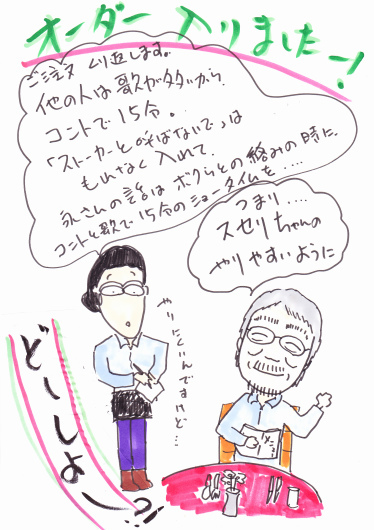 オーダー入りましたー!
ご注文くり返します。
他の人は歌が多いから
コントで15分。
「ストーカーと呼ばないで」は
もれなく入れて、
永さんの話はボクらとの絡みの時に、
コントと歌で15分のショータイムを‥‥
つまり‥‥
スセリちゃんの
やりやすいように
やりにくいんですけど‥‥
どーしよー?!